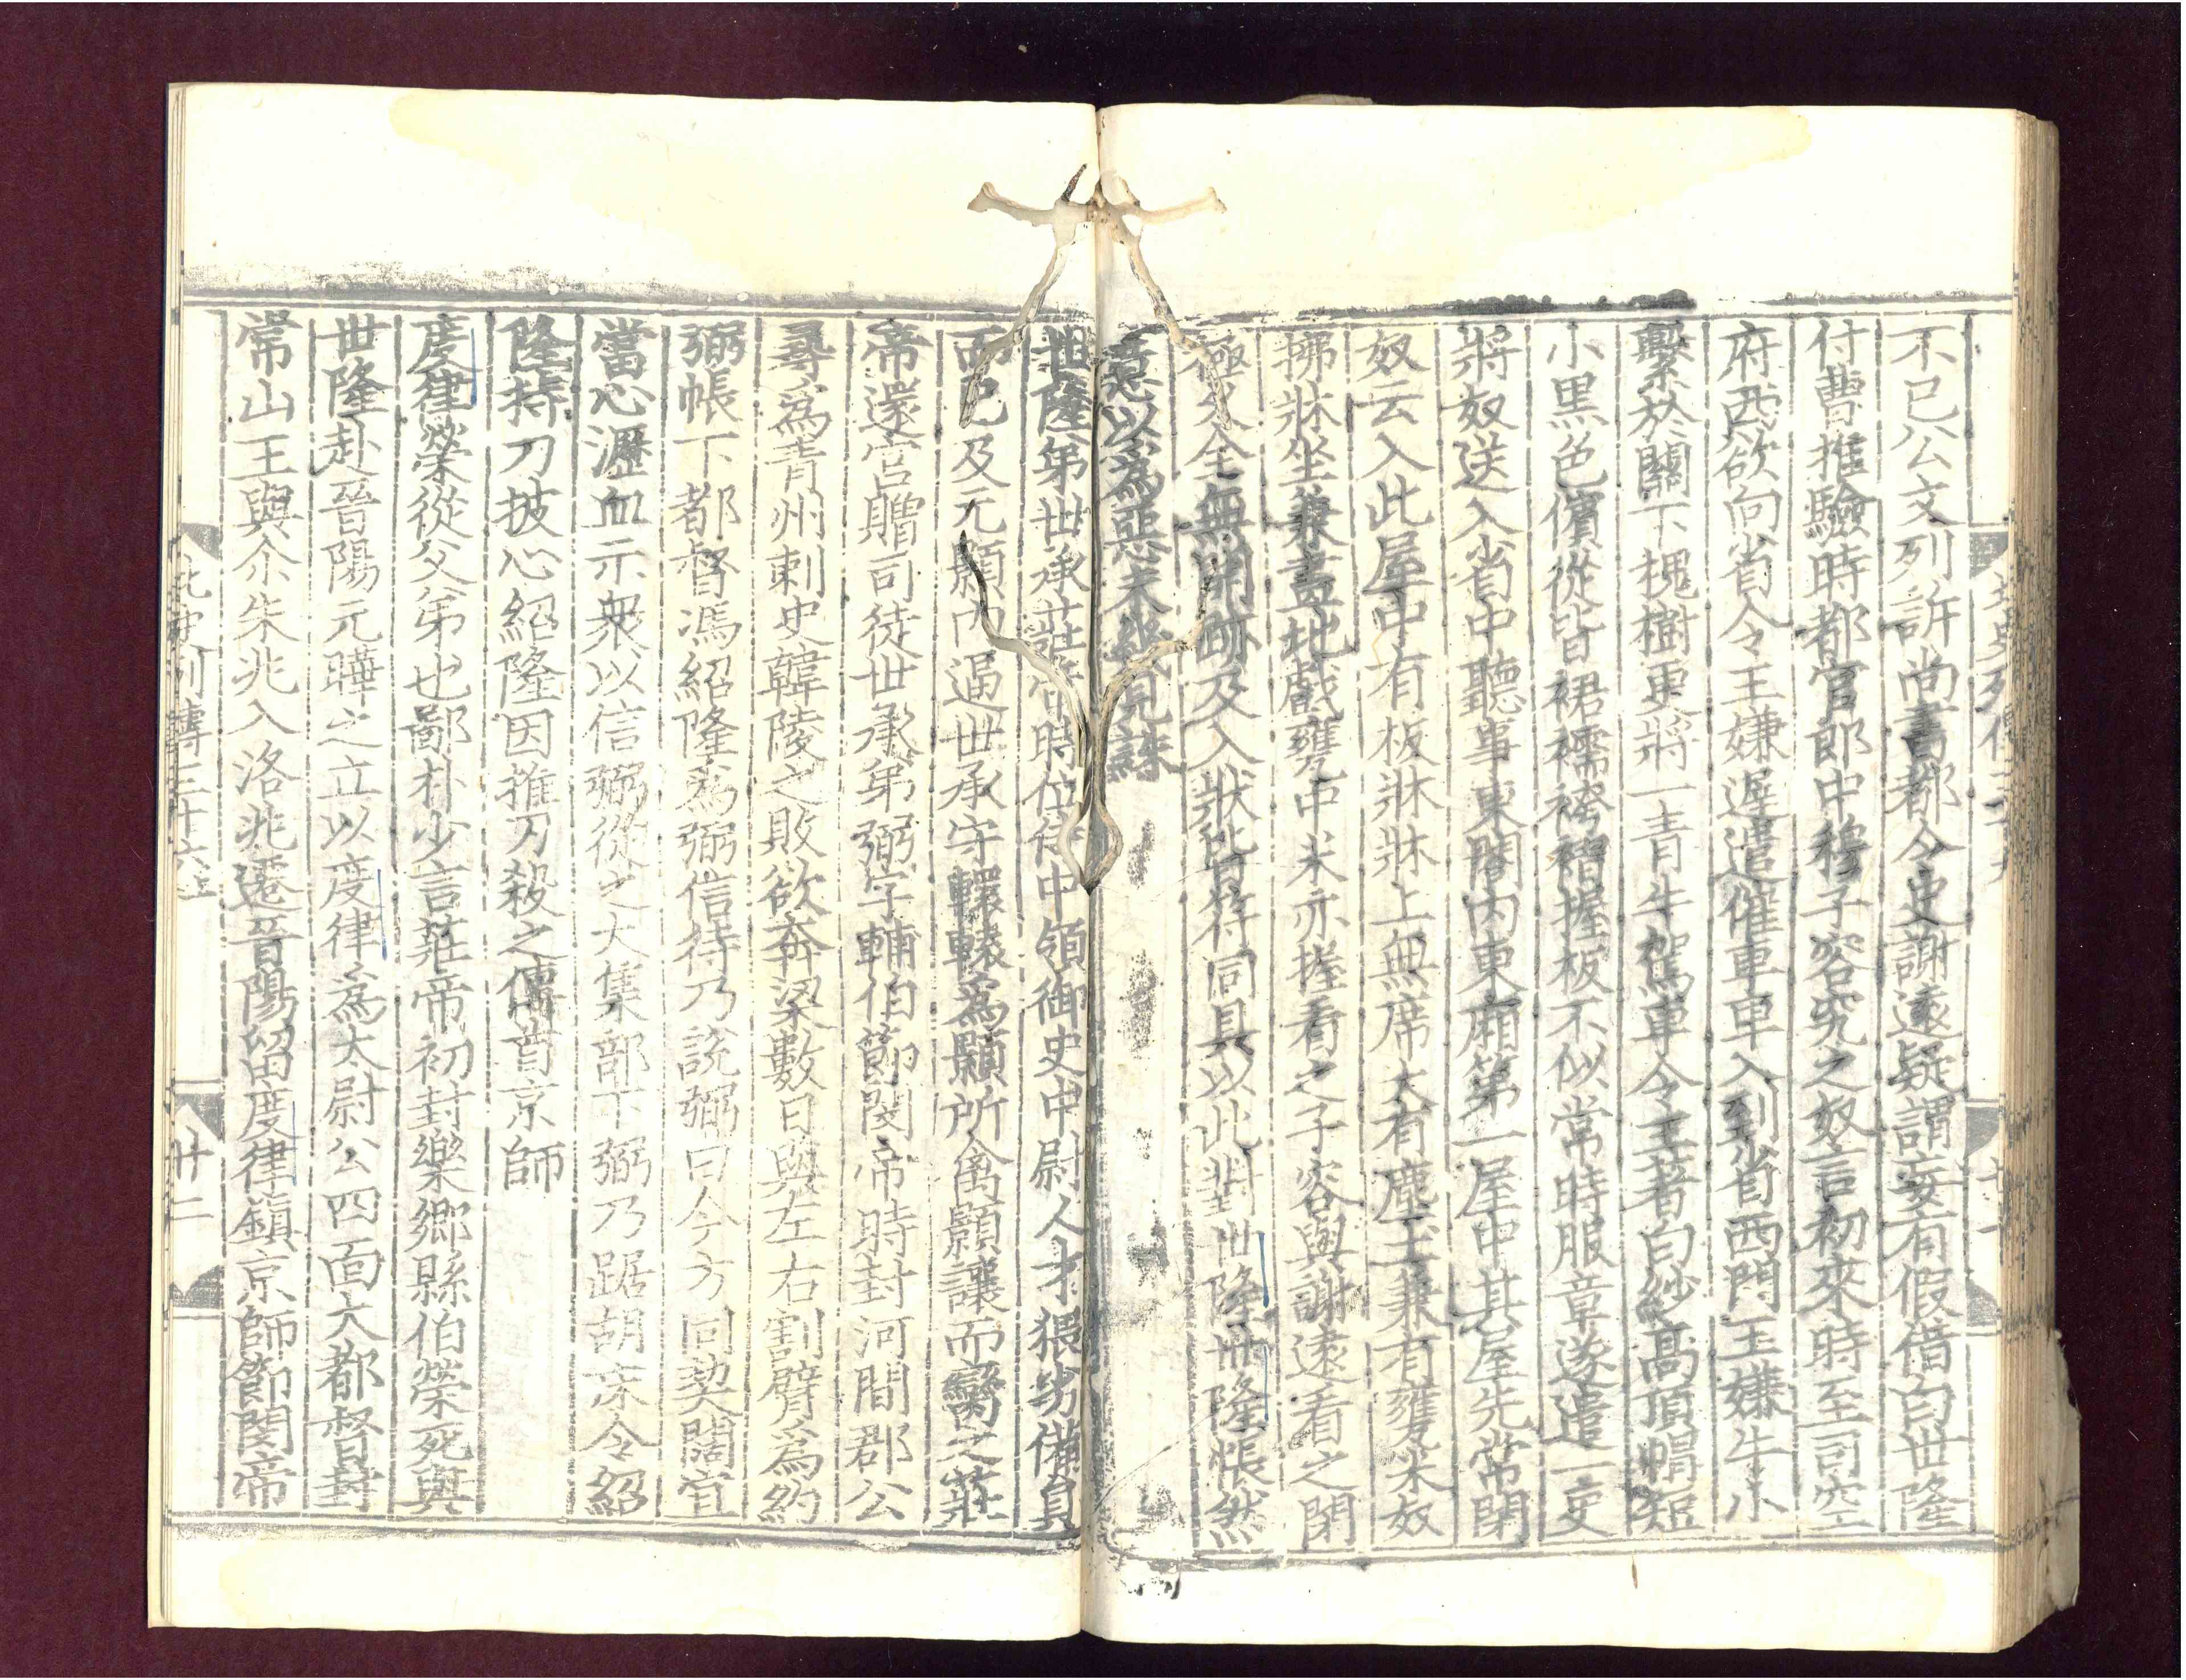 不已公文列訴尚書都令史謝遠疑謂妄有假借白世隆
付曹推驗時都官郎中穆子容究之奴言初來時至司空
府西欲向省令王嫌遲遣催車車入到省西門王嫌牛小
繫於闕下槐樹更將一青牛駕車令王著白紗高頂帽短
小黑色儐從皆裙襦袴褶握板不似常時服章遂遣一吏
將奴送入省中聽事東閤內東廂第一屋中其屋先常閉
奴云入此屋中有板牀牀上無席大有塵土兼有甕米奴
拂牀坐兼畫地戲甕中米亦握看之子容與謝遠看之閉
極久全無開跡及入狀皆符同具以此對世隆世隆悵然
意以爲惡未幾見誅
世隆弟世承莊帝時位侍中領御史中尉人才猥劣備員
而已及元顥內逼世承守轘轅爲顥所禽顥讓而臠之莊
帝還宮贈司徒世承弟弼字輔伯節閔帝時封河間郡公
尋爲青州刺史韓陵之敗欲奔梁數日與左右割臂爲約
弼帳下都督馮紹隆爲弼信待乃說弼曰今方同契闊宜
當心瀝血示衆以信弼從之大集部下弼乃踞胡床令紹
隆持刀披心紹隆因推刀殺之傳首京師
度律榮從父弟也鄙朴少言莊帝初封樂鄉縣伯榮死與
世隆赴晉陽元曄之立以度律爲太尉公四面大都督封
常山王與尒朱兆入洛兆遷晉陽留度律鎮京師節閔帝
北史列傳三十六上
廿二